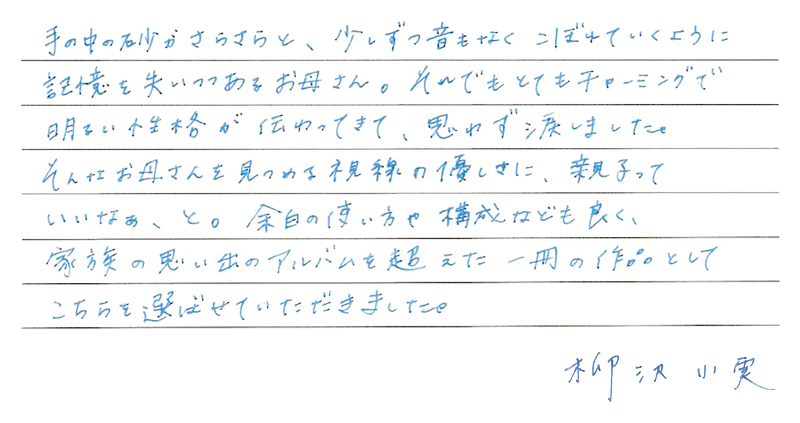 手の中の砂がさらさらと、少しずつ音もなくこぼれていくように
記憶を失いつつあるお母さん。それでもとてもチャーミングで
明るい性格が伝わってきて、思わず涙しました。
そんなお母さんを見つめる視線の優しさに、親子って
いいなぁ、と。余白の使い方や構成なども良く、
家族の思い出のアルバムを超えた一冊の作品として
こちらを選ばせていただきました。
柳沢小実